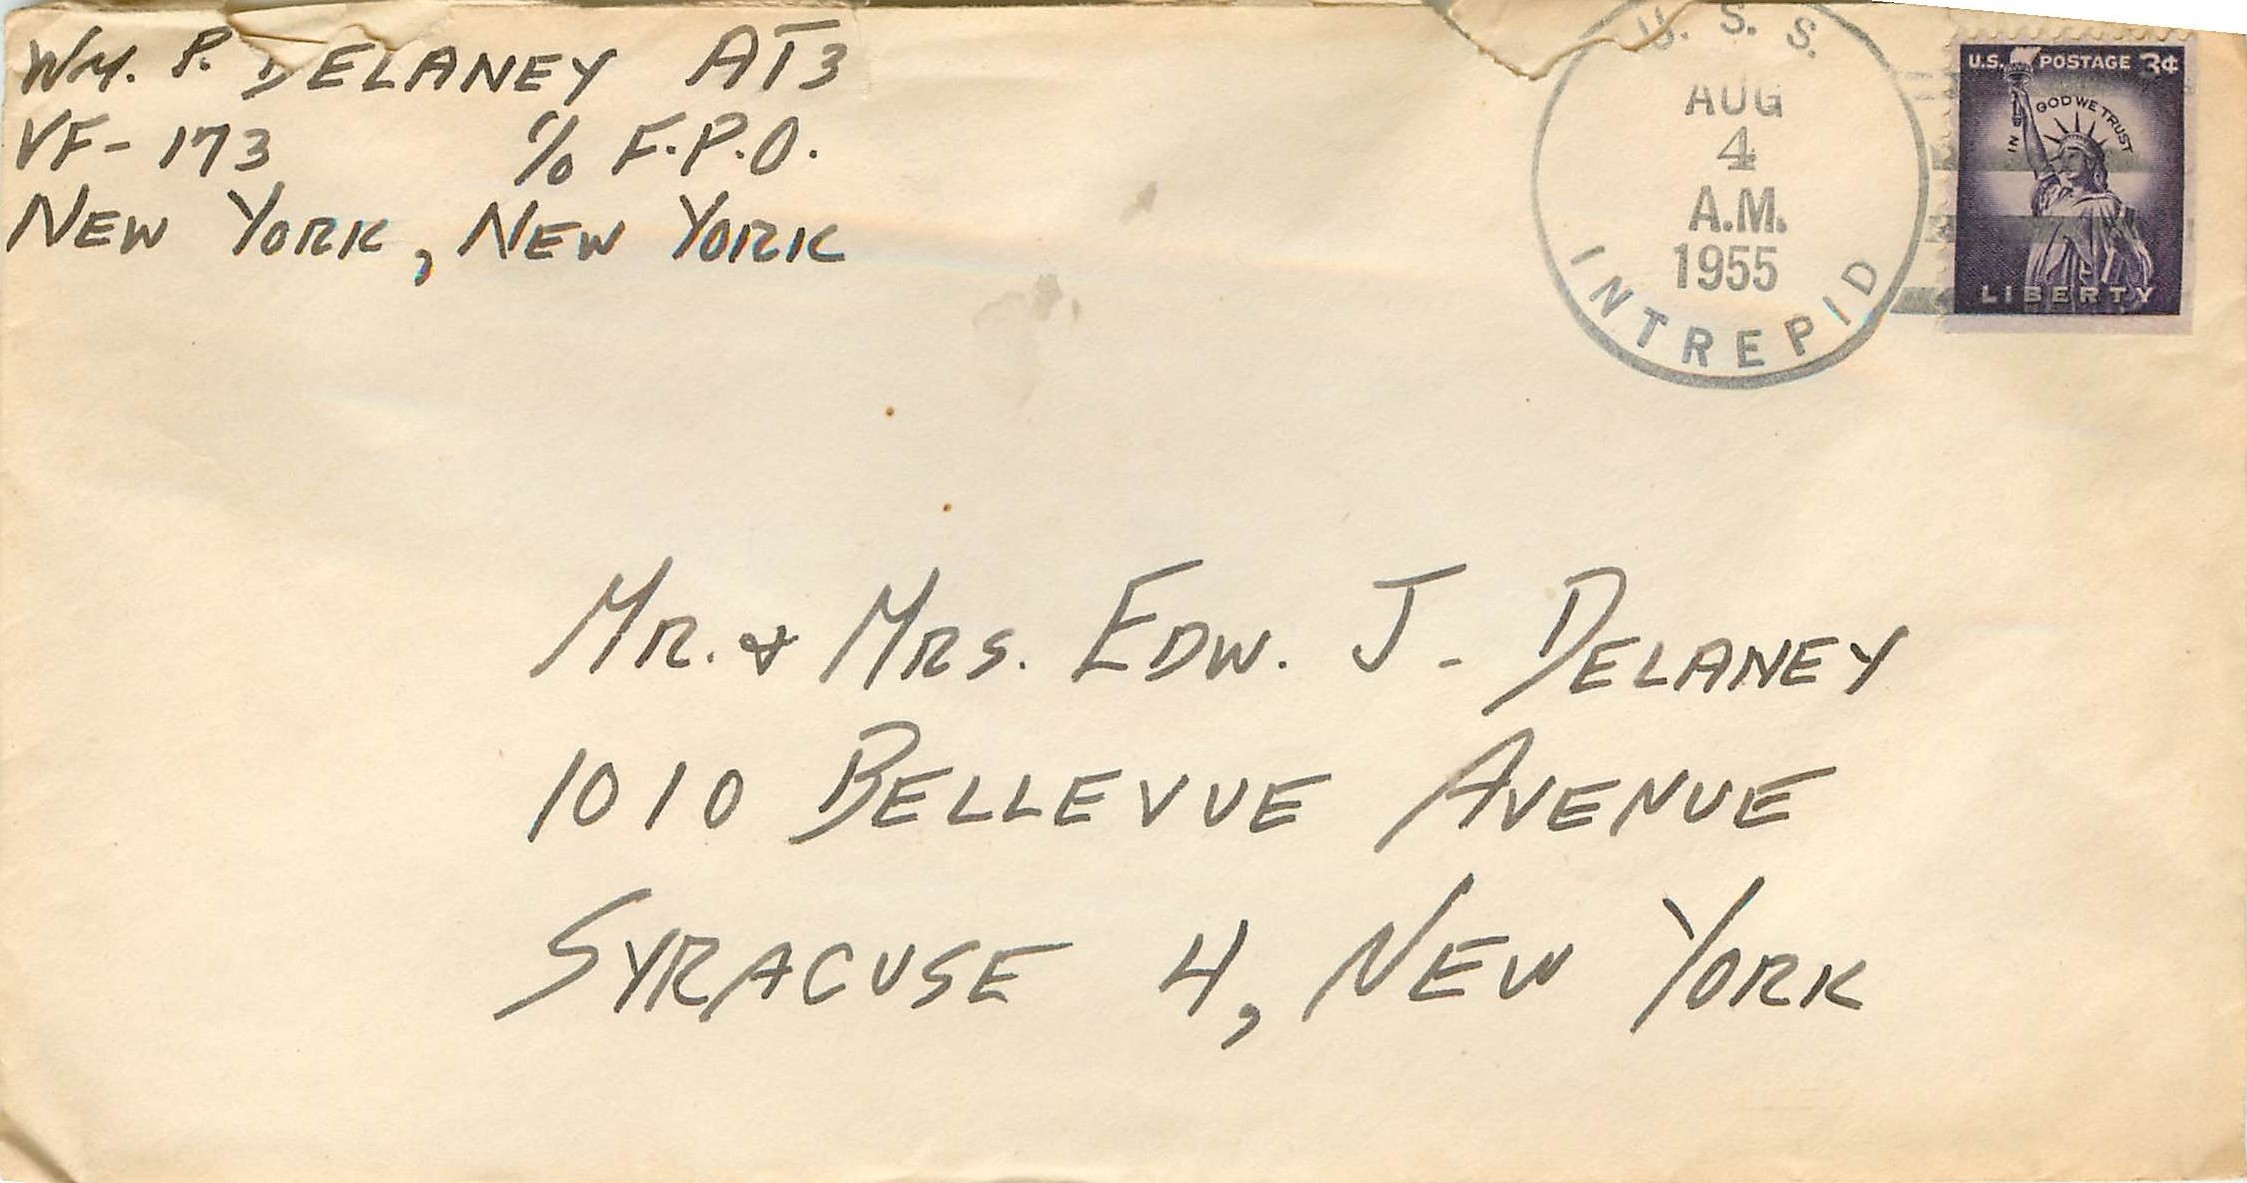 Wm. P. DELANEY AT3
VF-173 % F.P.O.
NEW YORK, NEW YORK
U. S. S.
AUG
4
A.M.
1955
INTREPID
U.S. POSTAGE 3¢
IN GOD WE TRUST
LIBERTY
MR. & MRS. EDW. J. DELANEY
1010 BELLEVUE AVENUE
SYRACUSE 4, NEW YORK